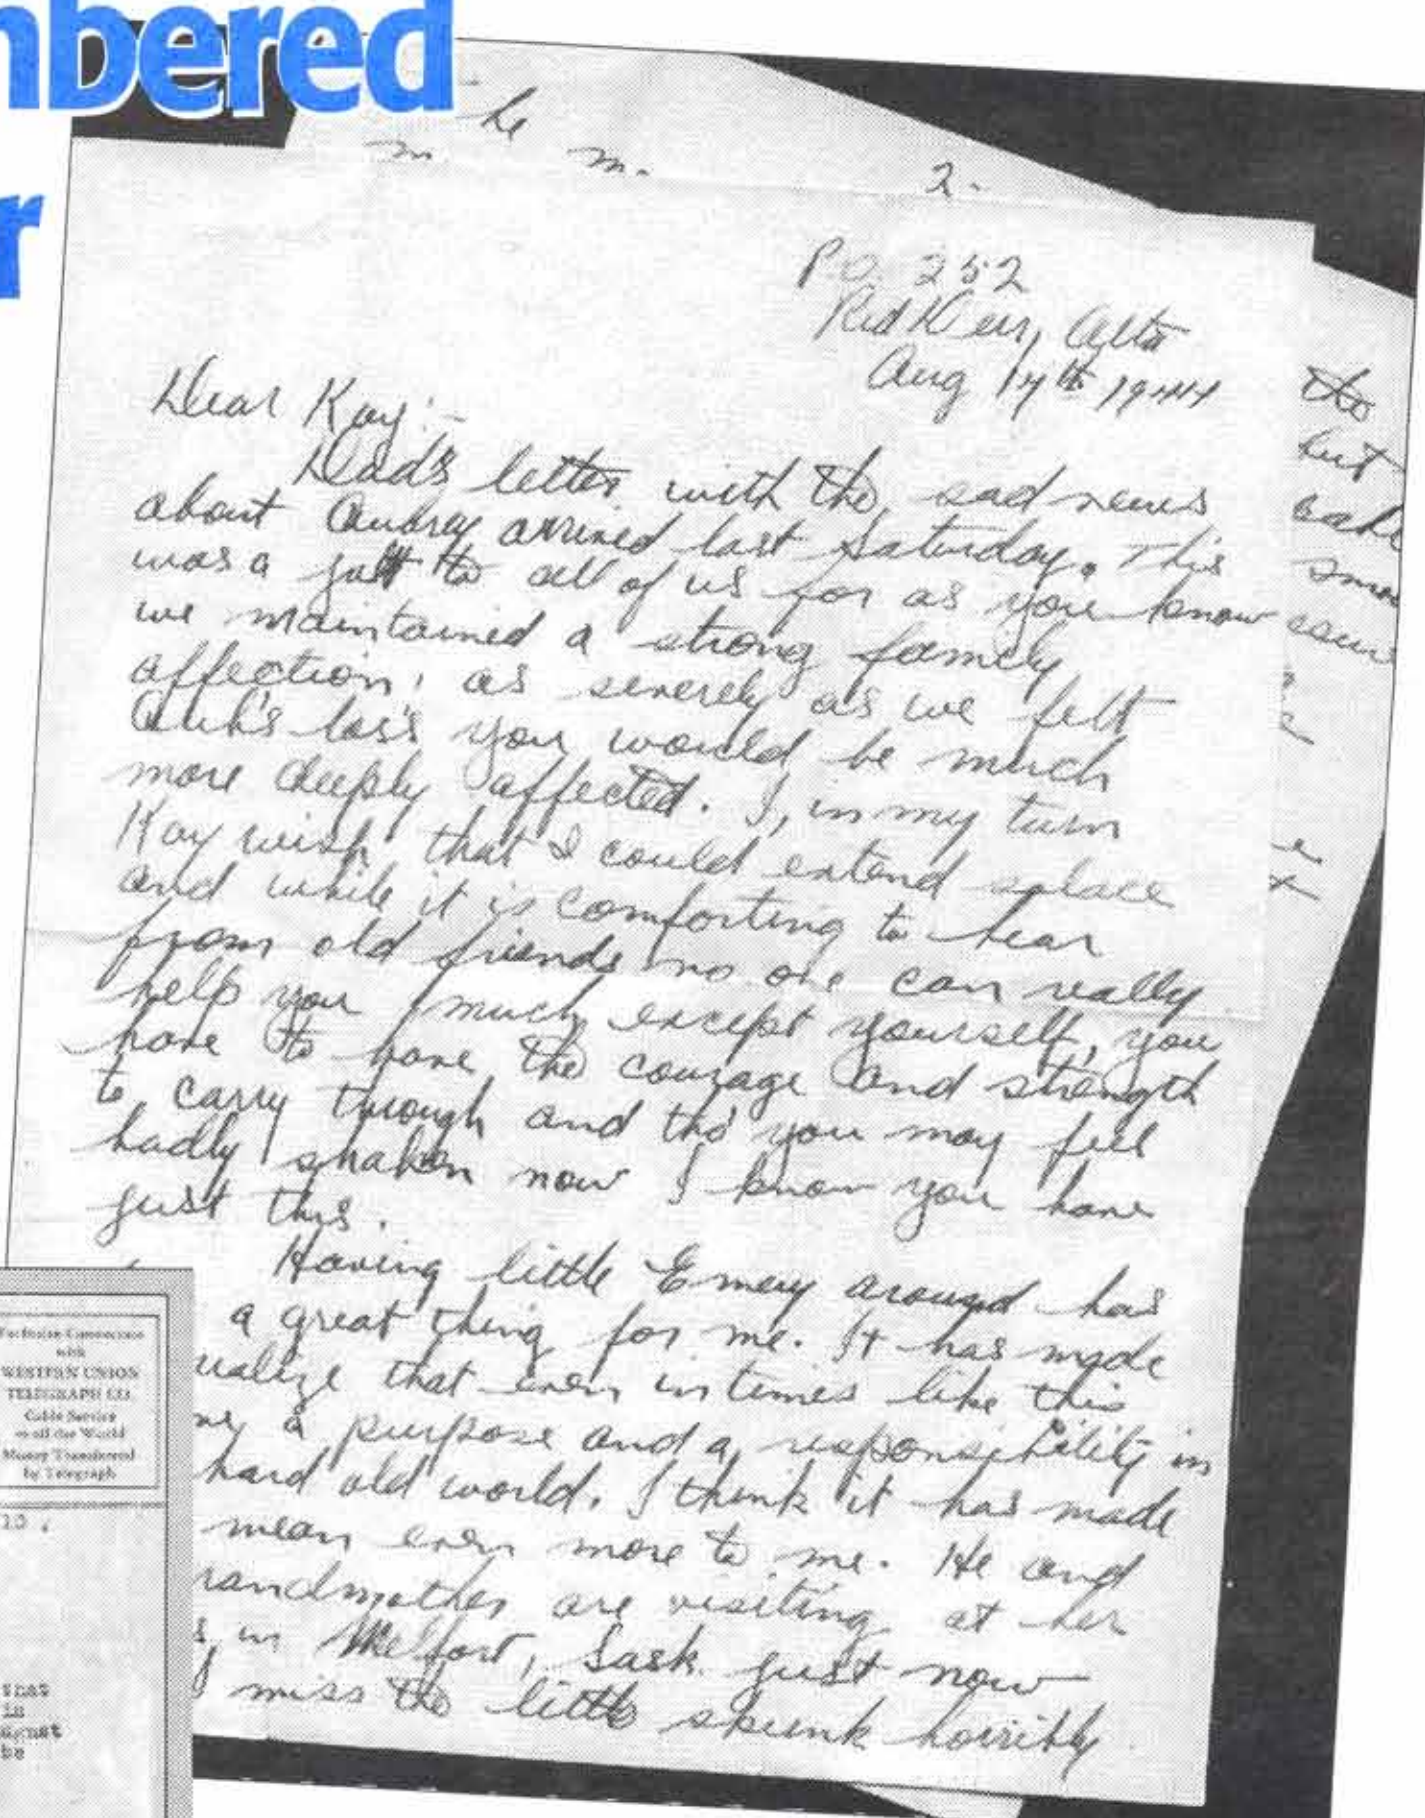 nbered
r
he
m. m. 2.
P.O. 252
Red Deer, Alta
Aug 17th 1944
Dear Kay:-
Dad's letter with the sad news
about Aubrey arrived last Saturday. This
was a jolt to all of us for as you know
we maintained a strong family
affection; as severely as we felt
Aub's loss you would be much
more deeply affected. I, in my turn
Kay wish that I could extend solace
and while it is comforting to hear
from old friends no one can really
help you much except yourself, you
have to have the courage and strength
to carry through and tho' you may feel
badly shaken now I know you have
just this.
Having little Emery around has
a great thing for me. It has made
realize that even in times like this
a purpose and a responsibility in
hard old world. I think it has made
mean even more to me. He and
randmother are visiting at her
s in Melfort, Sask. just now
miss the little skunk horribly
the
but
Exclusive Connection
with
WESTERN UNION
TELEGRAPH CO.
Cable Service
to all the World
Money Transferred
by Telegraph
10 .
that
in
against
be